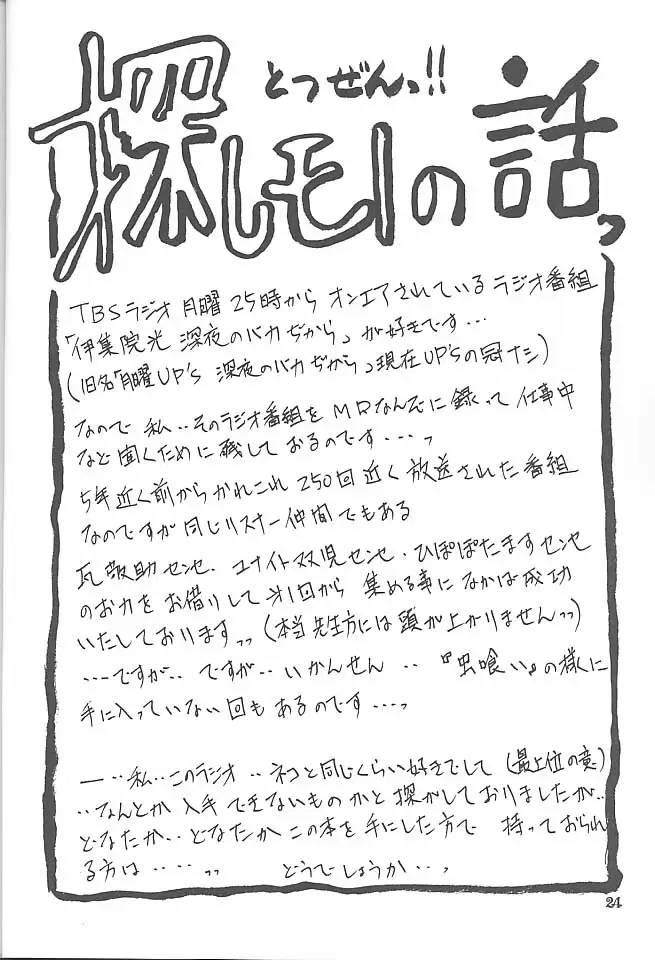 とつぜんっ!!
探しモノの話っ
TBSラジオ 月曜 25時から オンエアされている ラジオ番組
「伊集院光 深夜のバカぢから」が好きです…
(旧名「月曜UP's 深夜のバカぢから」現在UP'sの冠ナシ)
なので 私‥そのラジオ番組を MDなんぞに録って 仕事中
など聞くために残しておるのです‥‥っ
5年近く前からかれこれ 250回近く放送された番組
なのですが同じリスナー仲間でもある
瓦敬助センセ、ユナイト双児センセ・ひぽぽたますセンセ
のお力をお借りして 第1回から 集める事に なかば成功
いたしております〟(本当先生方には頭が上がりませんっっ)
‥‥ですが‥ ですが‥ いかんせん ‥ 『虫喰い』の様に
手に入っていない回もあるのです‥‥っ
―‥私‥このラジオ‥ネコと同じくらい好きでして(最上位の意)
‥なんとか入手できないものかと探がしておりましたが‥
どなたか‥どなたかこの本を手にした方で 持っておられ
る方は‥‥〟 どうでしょうか‥っ
24